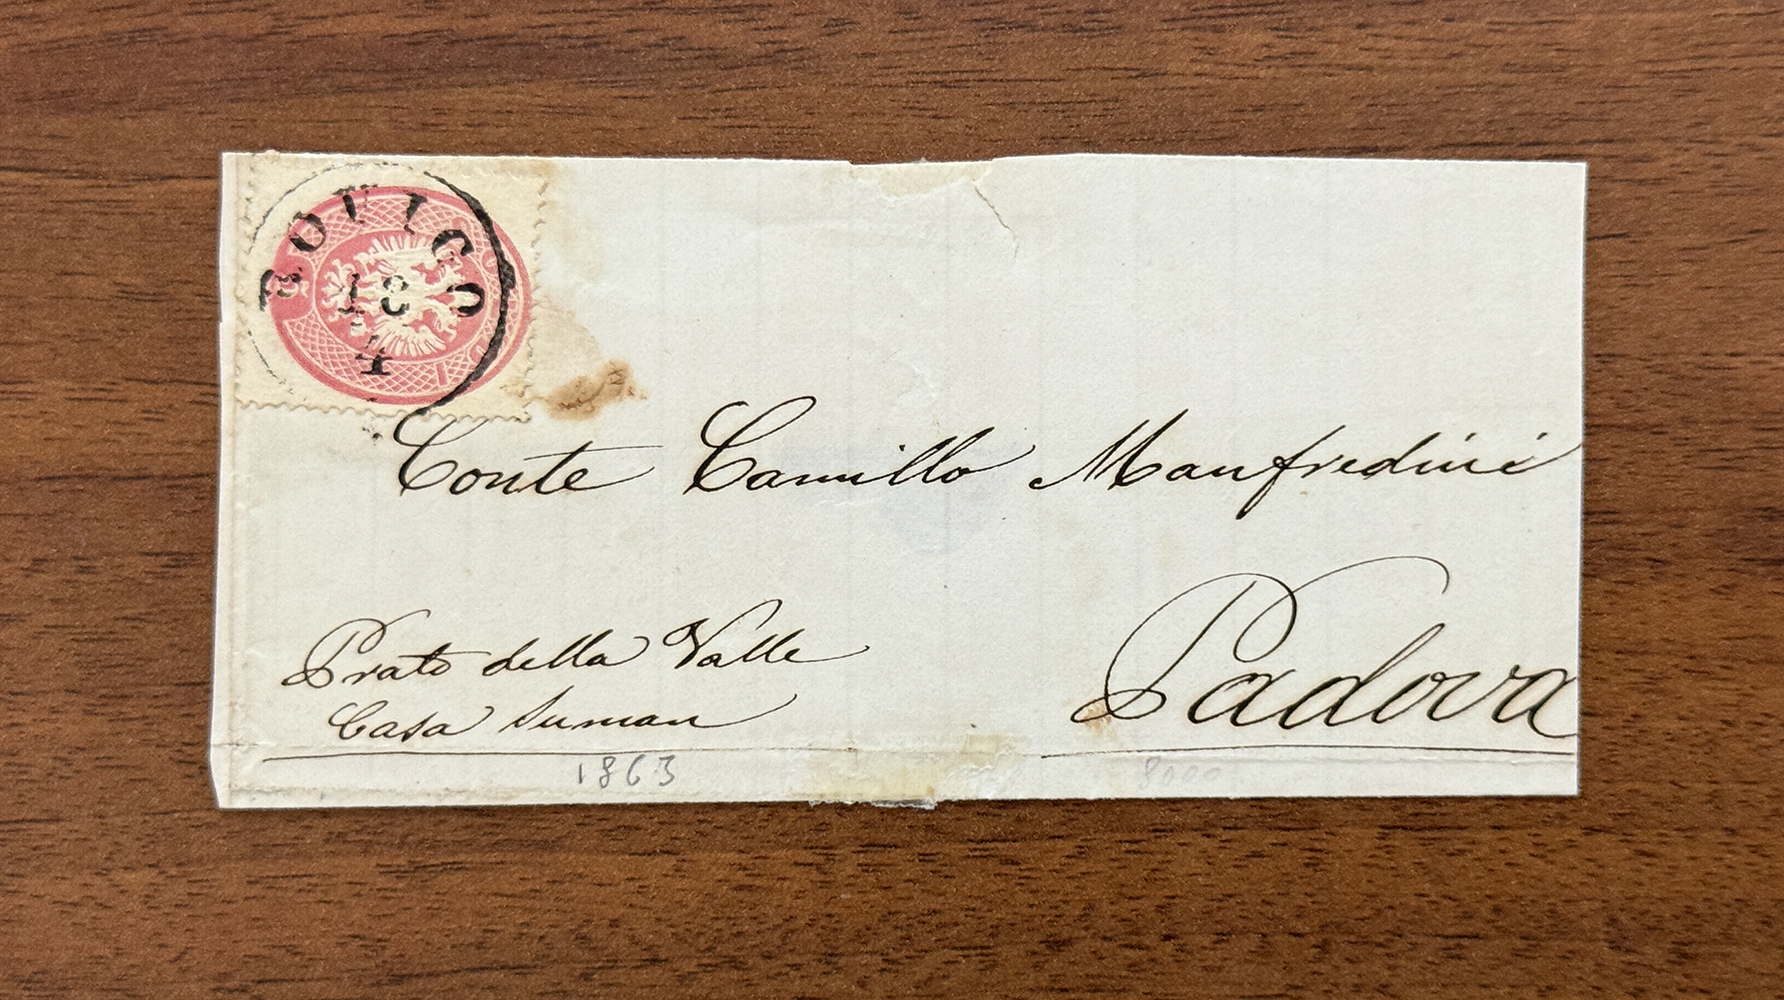 ROVIGO
18
4
Conte Camillo Manfredini
Prato della Valle
Casa Suman
Padova
1863
8000